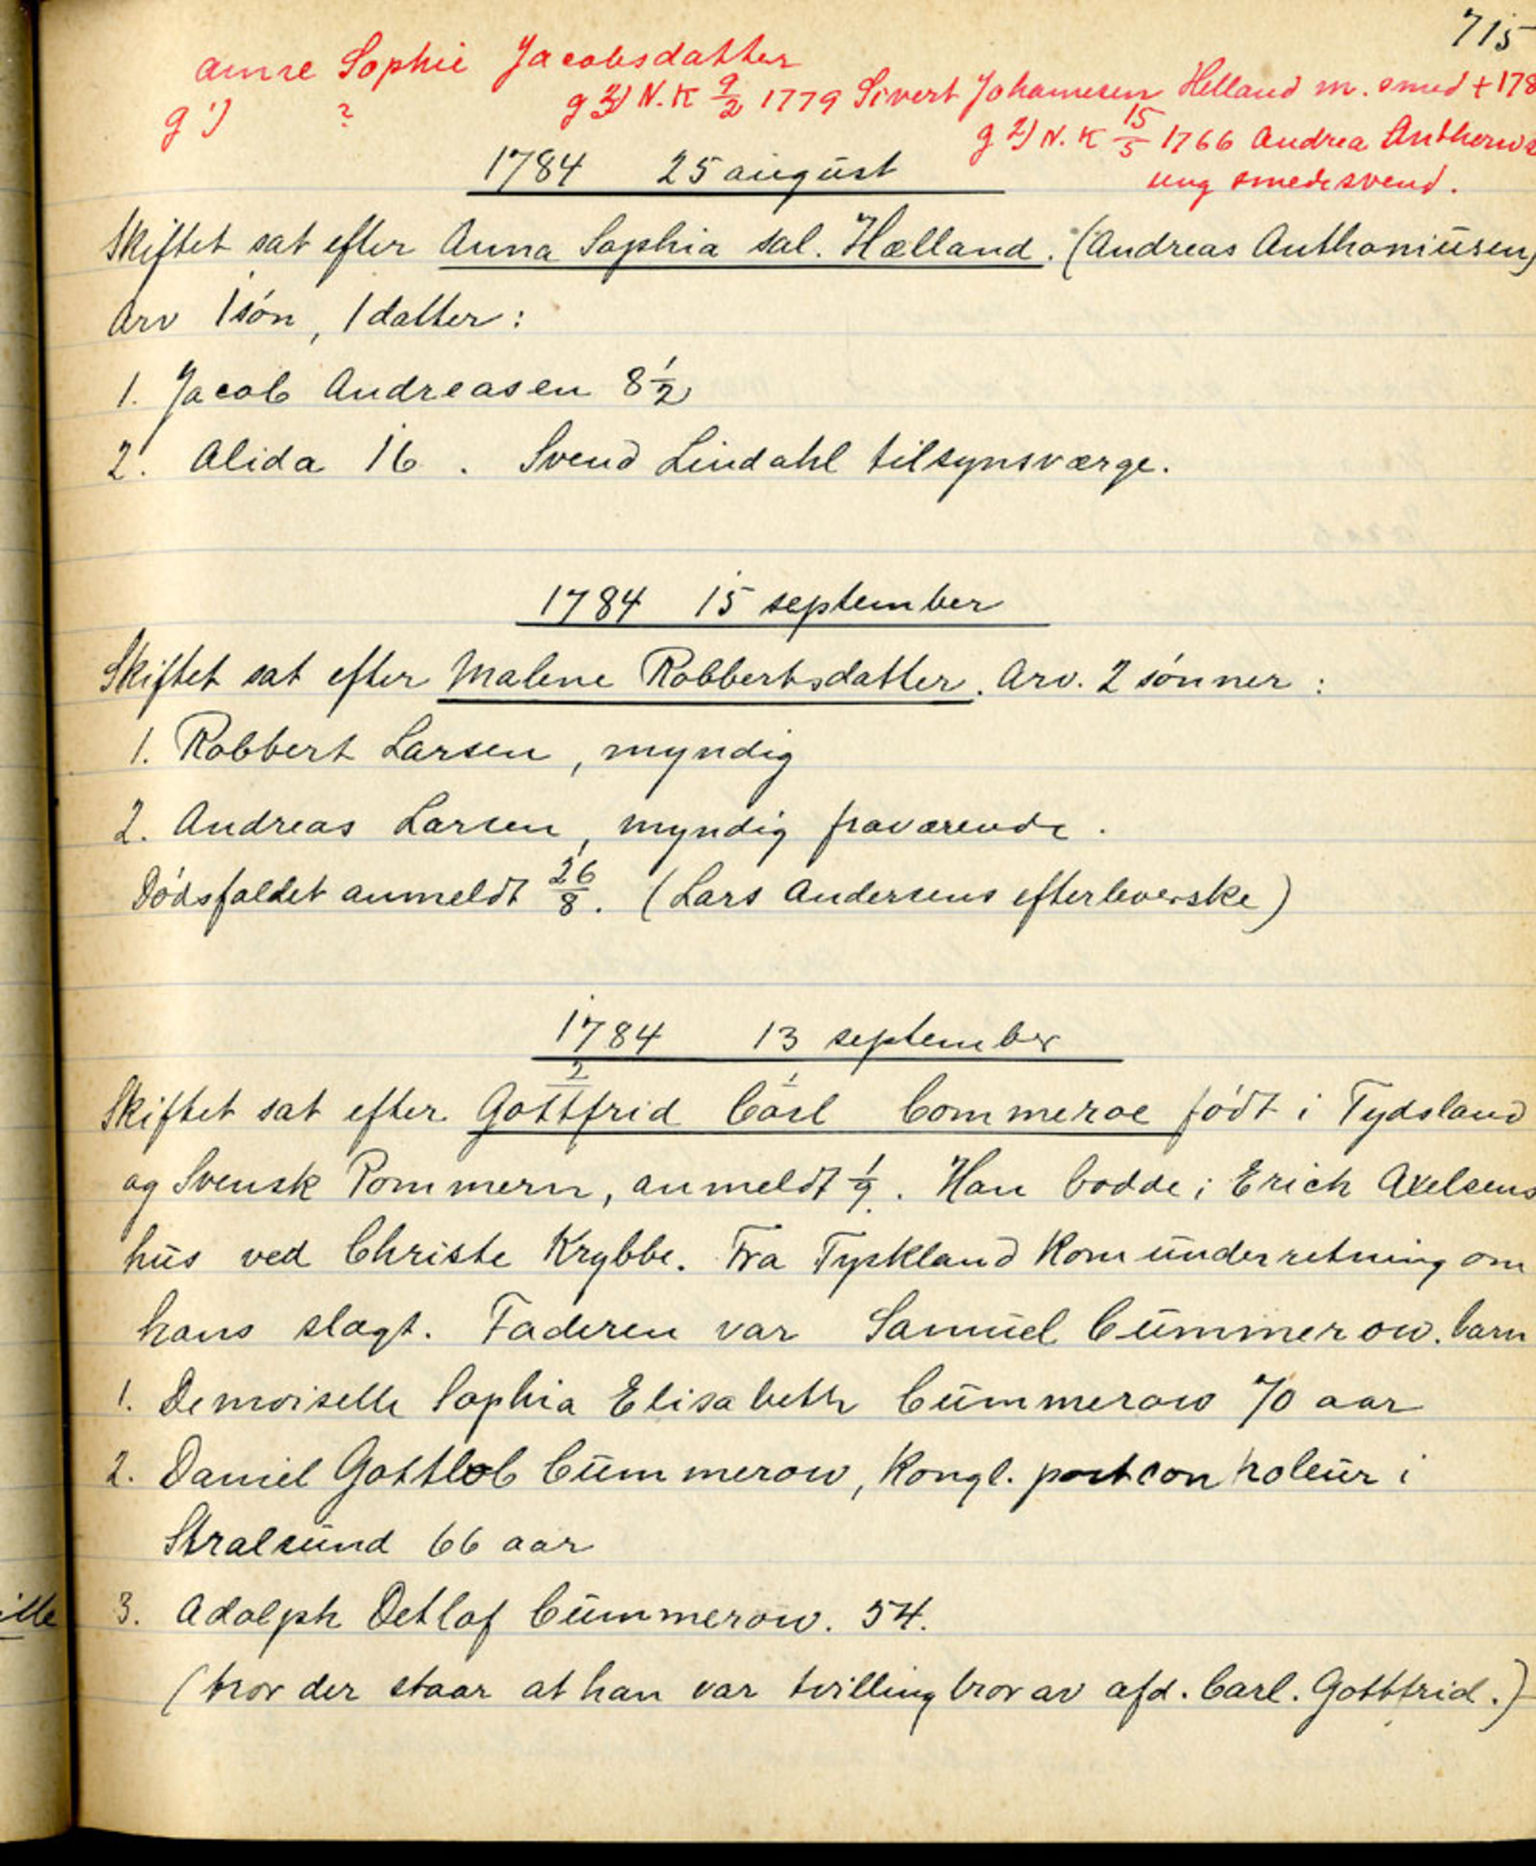 715
Anne Sophie Jacobsdatter
g 1) ? g 3) N.K 9/2 1779 Sivert Johannesen Helland m. smed + 178
g 2) N. K 15/5 1766 Andrea Anthonis
ung smedesvend.
1784 25 august
Skiftet sat efter Anna Sophia sal. Hælland. (Andreas Anthoniüsen)
Arv 1 søn, 1 datter:
1. Jacob Andreasen 8 1/2
2. Alida 16. Svend Lindahl tilsynsværge.
1784 15 september
Skiftet sat efter Malene Robbertsdatter. Arv. 2 sønner:
1. Robbert Larsen, myndig
2. Andreas Larsen, myndig fraværende.
Dødsfaldet anmeldt 26/8. (Lars Andersens efterleverske)
1784 13 september
2 1
Skiftet sat efter Gottfrid Carl Commeroe født i Tydsland
og Svensk Pommern, anmeldt 1/9. Han bodde i Erich Axelsens
hüs ved Christe Krybbe. Fra Tyskland kom ünderretning om
hans slægt. Faderen var Samüel Cümmerow. barn
1. Demoiselle Sophia Elisabeth Cümmerow 70 aar
2. Daniel Gottlob Cümmerow, Kongl. postcontroleür i
Stralsünd 66 aar
ille
3. Adolph Detlof Cümmerow. 54.
(hvor der staar at han var tvillingbror av afd. Carl. Gottfrid.)